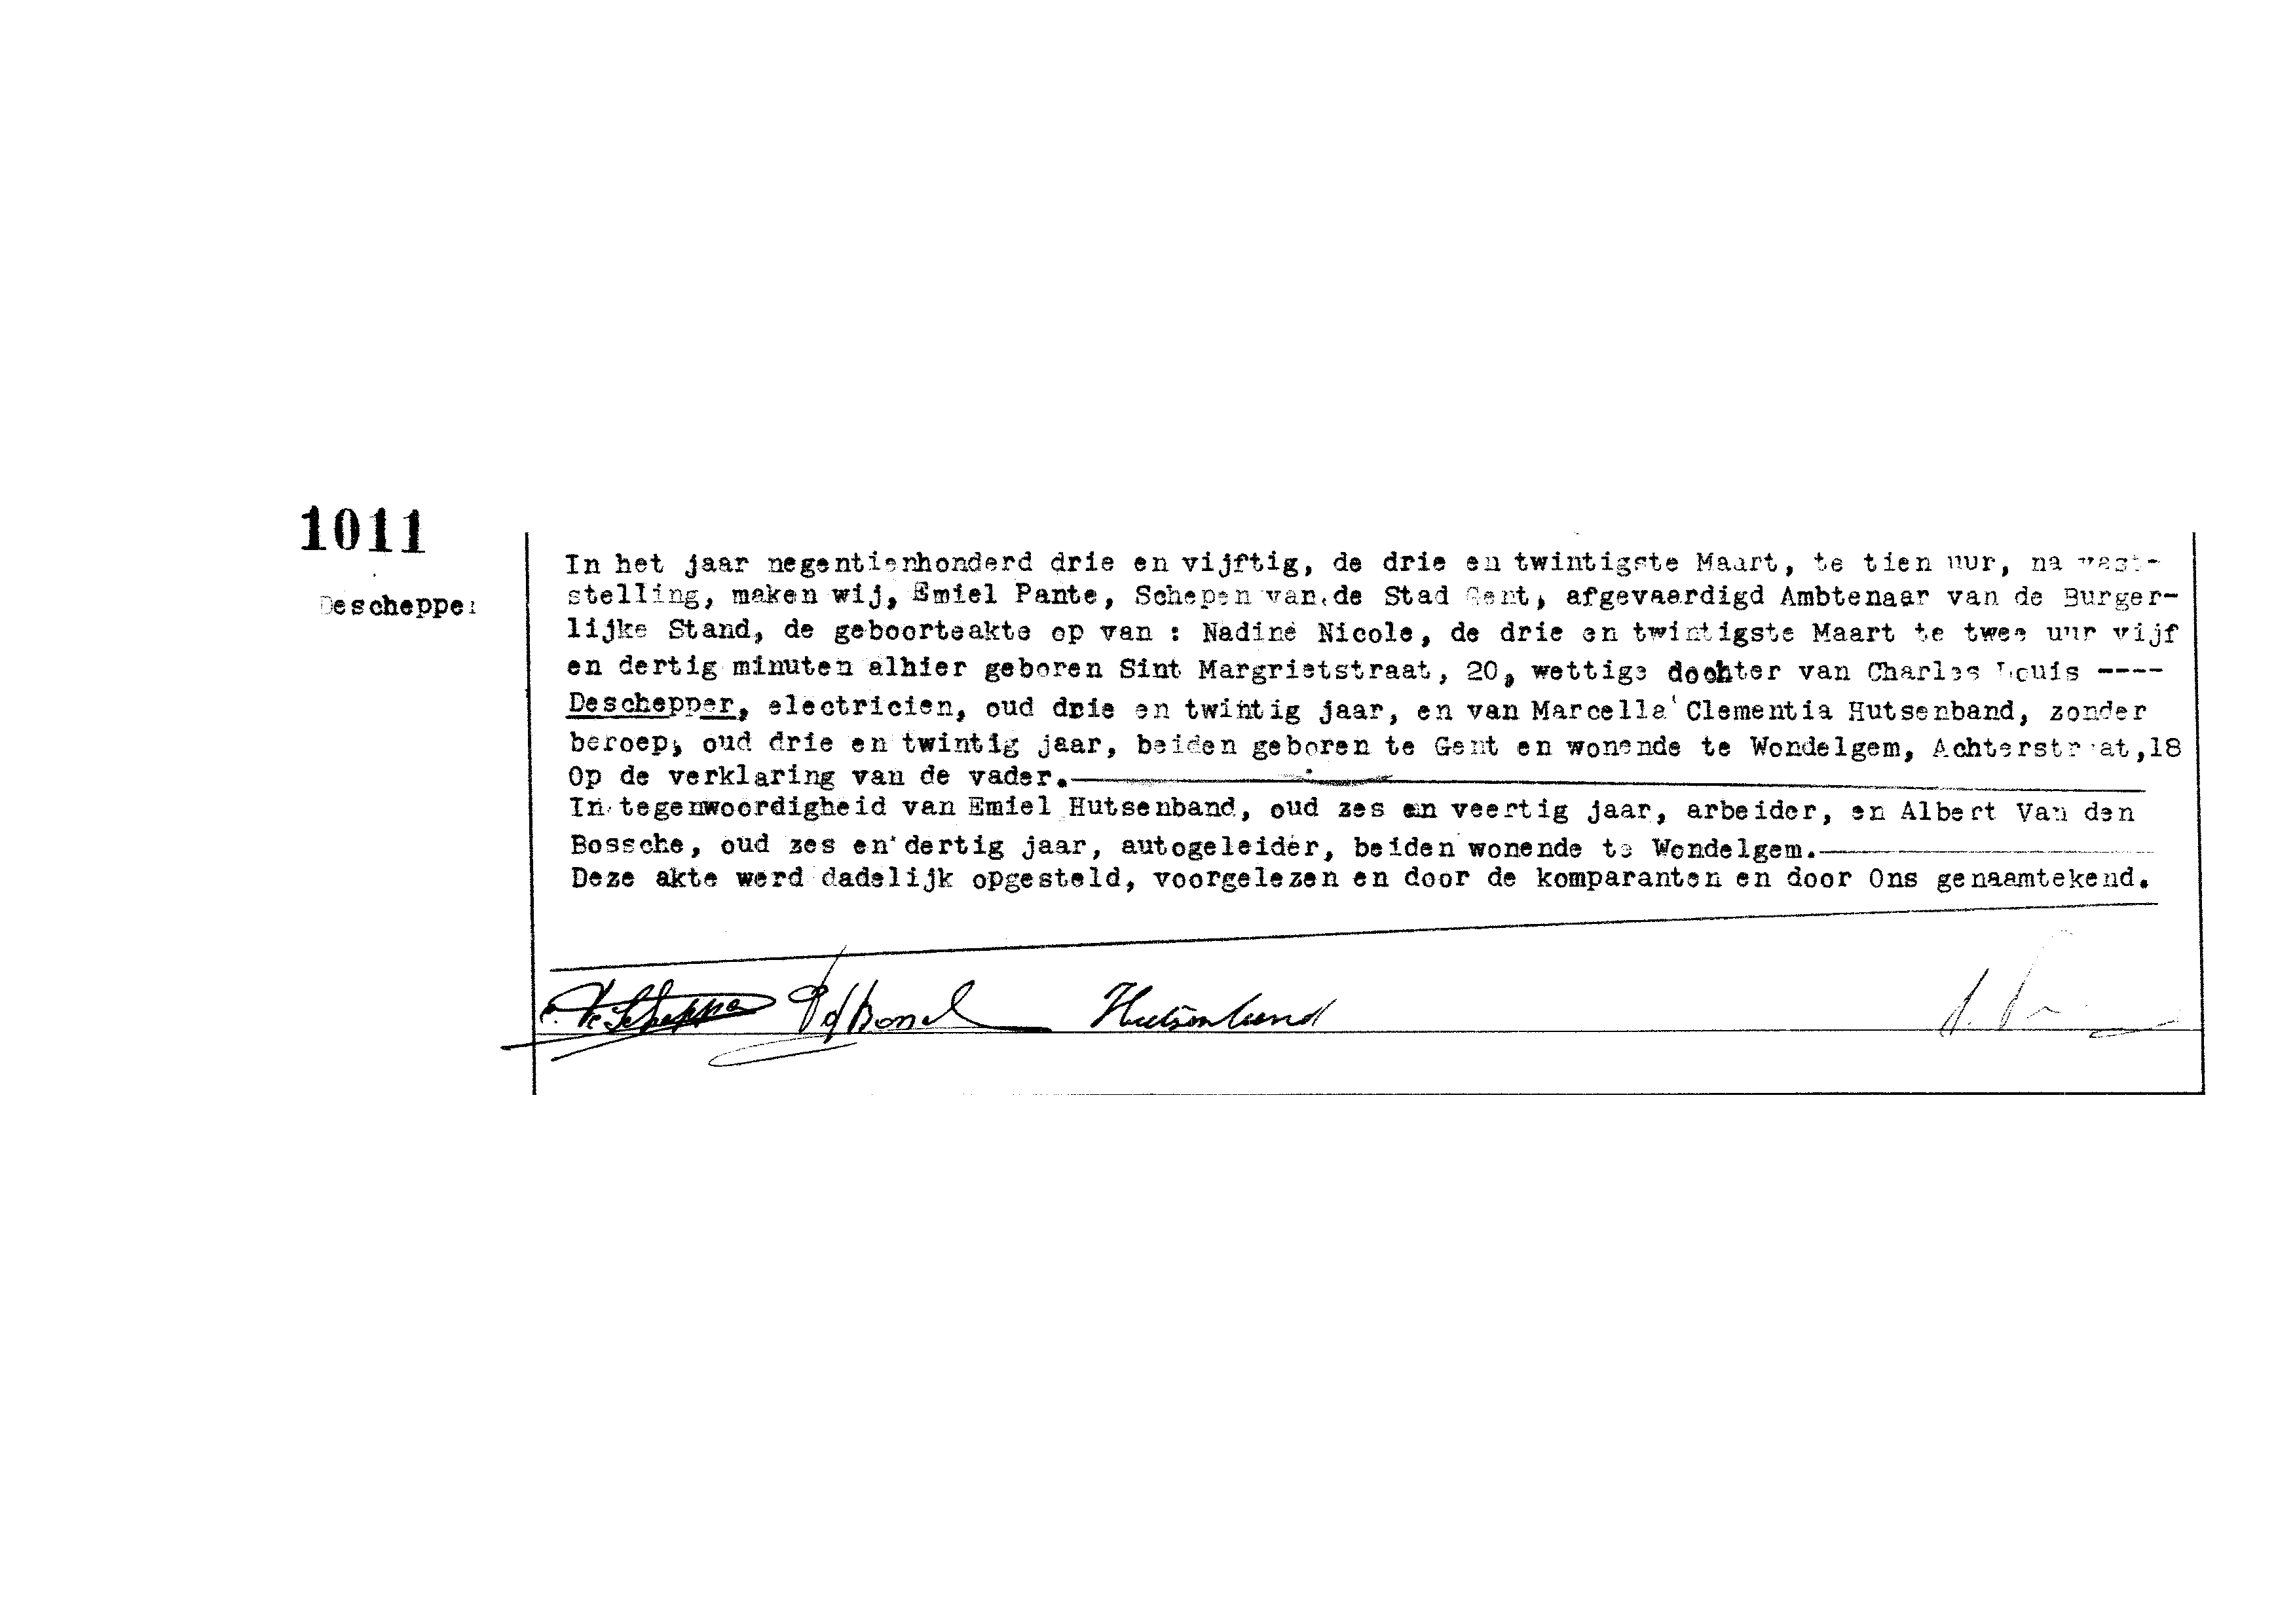 1011
Deschepper
In het jaar negentienhonderd drie en vijftig, de drie en twintigste Maart, te tien uur, na vast-
stelling, maken wij, Emiel Pante, Schepen van de Stad Gent, afgevaardigd Ambtenaar van de Burger-
lijke Stand, de geboorteakte op van : Nadine Nicole, de drie en twintigste Maart te twee uur vijf
en dertig minuten alhier geboren Sint Margrietstraat, 20, wettige dochter van Charles Louis ----
Deschepper, electricien, oud drie en twintig jaar, en van Marcella Clementia Hutsenband, zonder
beroep, oud drie en twintig jaar, beiden geboren te Gent en wonende te Wondelgem, Achterstraat,18
Op de verklaring van de vader.
In tegenwoordigheid van Emiel Hutsenband, oud zes en veertig jaar, arbeider, en Albert Van den
Bossche, oud zes en dertig jaar, autogeleider, beiden wonende te Wondelgem.
Deze akte werd dadelijk opgesteld, voorgelezen en door de komparanten en door Ons genaamtekend.
Hutsenband